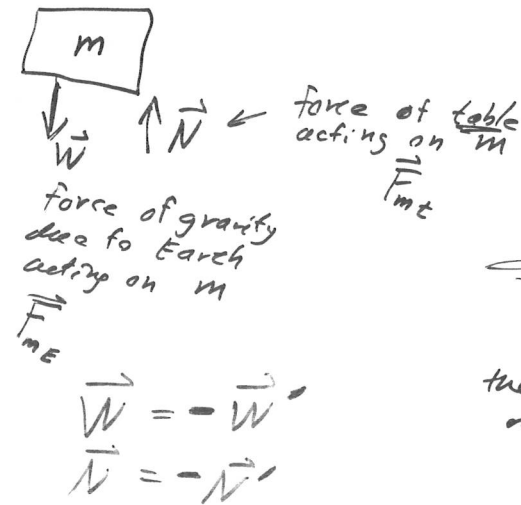 m
W
N ← force of table
acting on m
F mt
force of gravity
due to Earth
acting on m
F mE
W = - W'
N = - N'